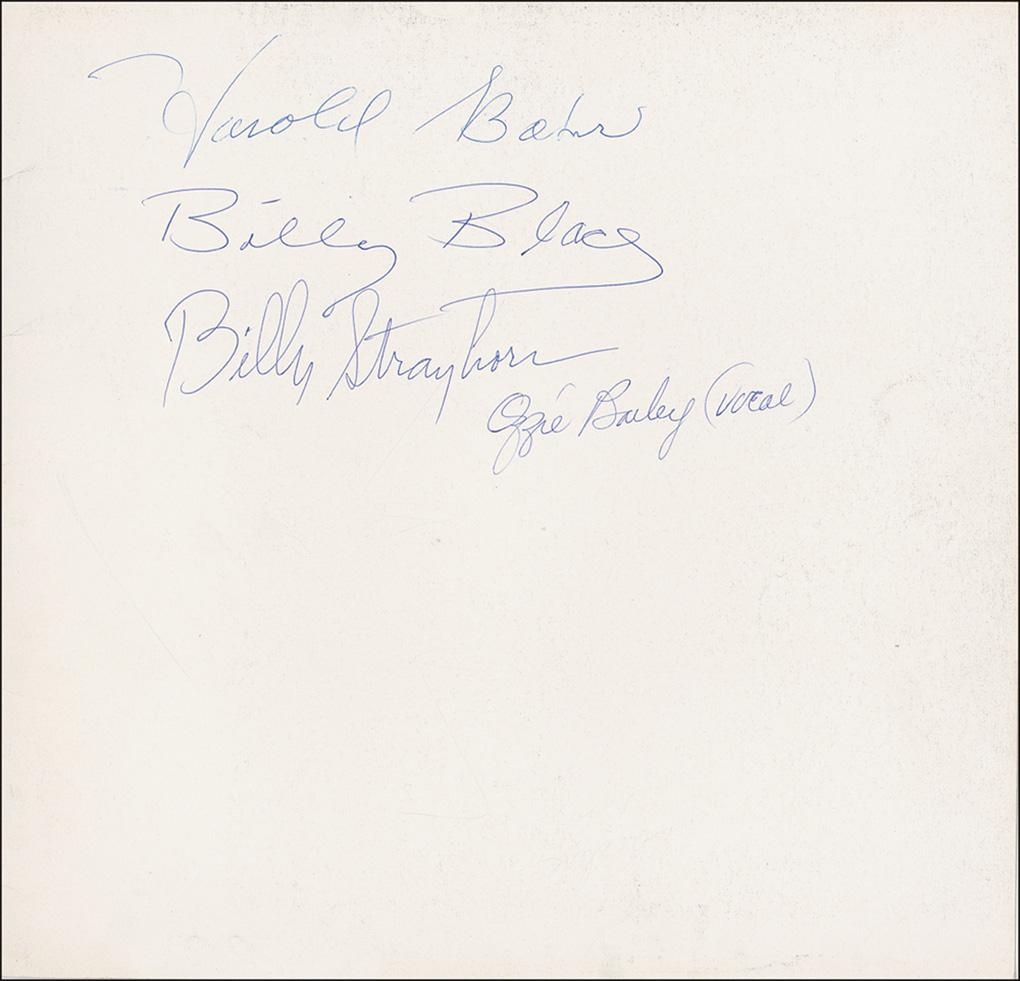 Harold Baker
Billy
Billy Strayhorn
Ozzie Bailey (vocal)